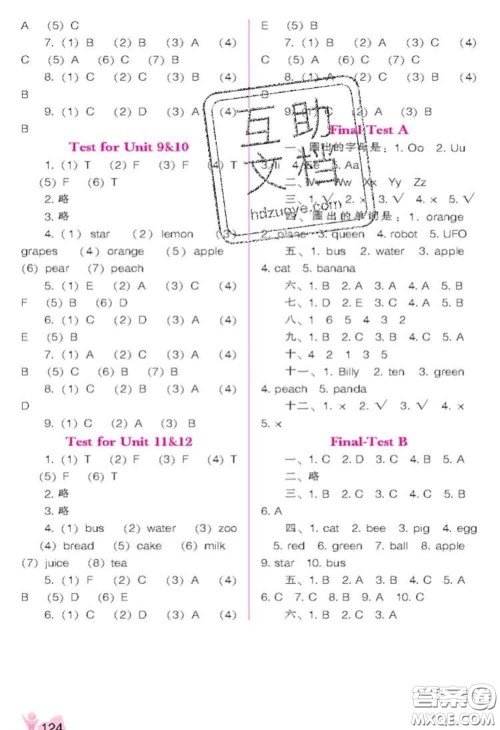 A (5) C
7. (1) B (2) B (3) A (4)
C (5) A (6) C (7) B
8. (1) C (2) A (3) D (4)
B
9. (1) D (2) C (3) A (4)
B
Test for Unit 9&10
1. (1) T (2) F (3) F (4) T
(5) F (6) T
2. 略
3. 略
4. (1) star (2) lemon (3)
grapes (4) orange (5) apple
(6) pear (7) peach
5. (1) E (2) A (3) C (4)
F (5) B (6) D
6. (1) C (2) D (3) A (4)
E (5) B
7. (1) A (2) B (3) A (4)
B (5) C (6) B (7) B
8. (1) C (2) B (3) A (4)
D
9. (1) C (2) D (3) A (4) B
Test for Unit 11&12
1. (1) T (2) F (3) F (4) T
(5) F (6) T
2. 略
3. 略
4. (1) bus (2) water (3) zoo
(4) bread (5) cake (6) milk
(7) juice (8) tea
5. (1) F (2) C (3) A (4)
B (5) D (6) E
6. (1) C (2) D (3) A (4) B
E (5) B
7. (1) B (2) B (3) A (4)
C (5) A (6) C (7) B
8. (1) A (2) C (3) D (4)
B
9. (1) C (2) D (3) A (4) B
Final-Test A
一、圈出的字母是: 1. Oo 2. Uu
3. Ii 4. Ee 5. Aa
二、Vv Ww Xx Yy Zz
三、1. √ 2. × 3. √ 4. × 5. √
四、圈出的单词是: 1. orange
2. plane 3. queen 4. robot 5. UFO
五、1. bus 2. water 3. apple
4. cat 5. banana
六、1. B 2. A 3. A 4. A 5. B
七、1. D 2. E 3. C 4. A 5. B
八、1 6 5 4 3 2
九、1. B 2. A 3. C 4. B 5. B
十、4 2 1 3 5
十一、1. Billy 2. ten 3. green
4. peach 5. panda
十二、1. × 2. √ 3. √ 4. ×
5. ×
Final-Test B
一、1. C 2. D 3. C 4. B 5. A
二、略
三、1. C 2. B 3. A 4. B 5. B
四、1. cat 2. bee 3. pig 4. egg
5. red 6. green 7. ball 8. apple
9. star 10. bus
五、1. B 2. A 3. C 4. B 5. A
6. C 7. C 8. B 9. A 10. A
六、1. B 2. C 3. A
互助
文档
hdzuoye.com
124
答案圈
MXQE.COM